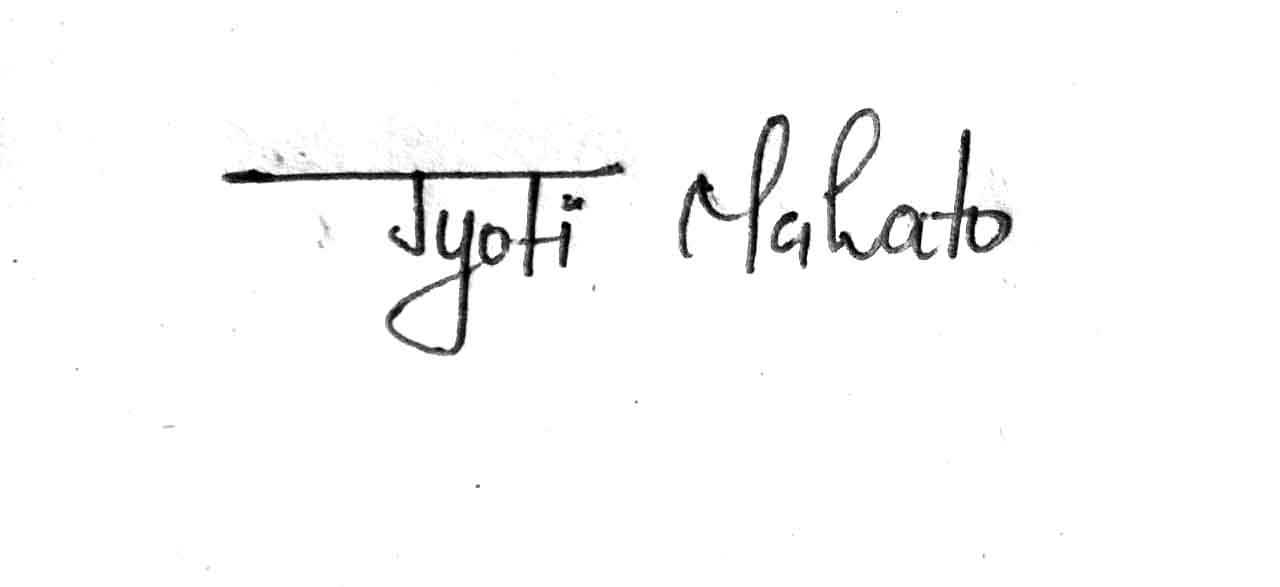 Jyoti Mahato